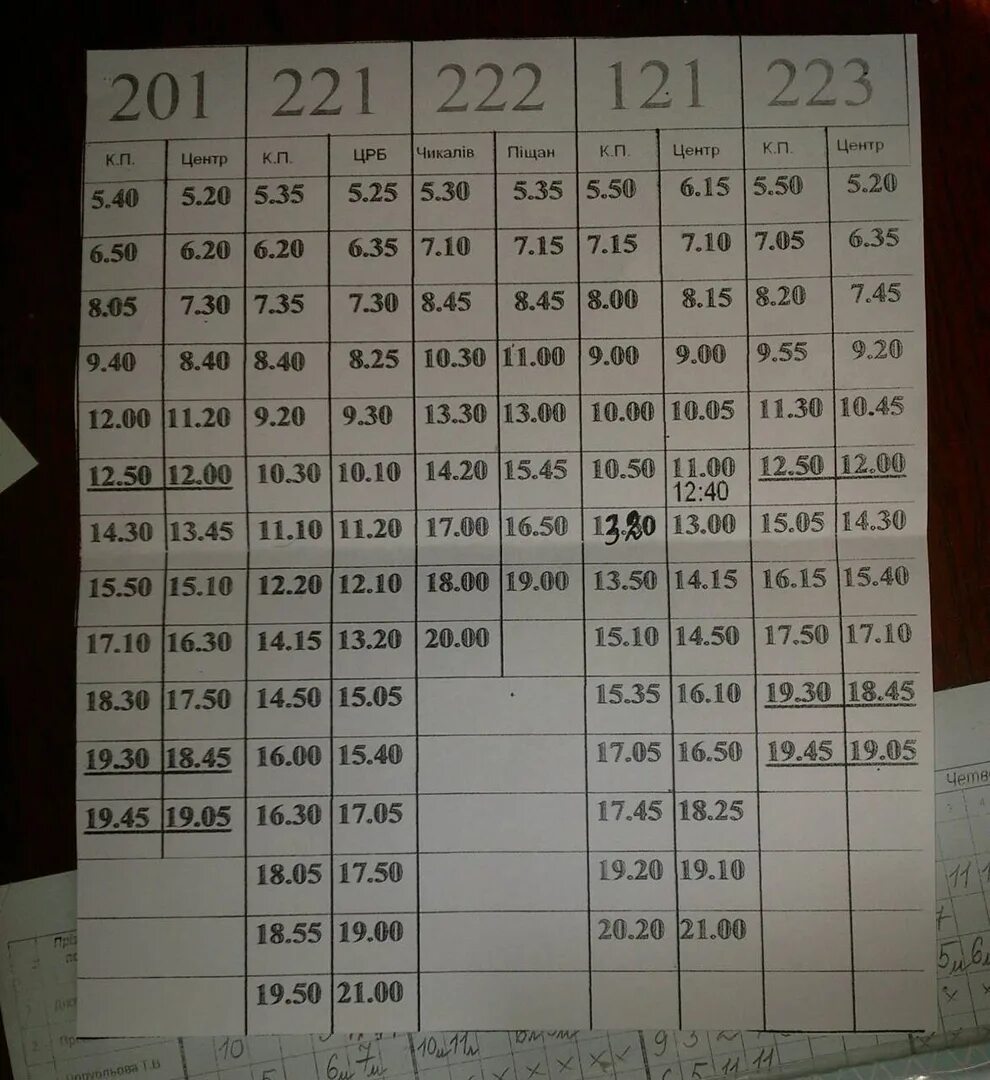 201 221 222 121 223
К.П. Центр К.П. ЦРБ Чикалів Піщан К.П. Центр К.П. Центр
5.40 5.20 5.35 5.25 5.30 5.35 5.50 6.15 5.50 5.20
6.50 6.20 6.20 6.35 7.10 7.15 7.15 7.10 7.05 6.35
8.05 7.30 7.35 7.30 8.45 8.45 8.00 8.15 8.20 7.45
9.40 8.40 8.40 8.25 10.30 11.00 9.00 9.00 9.55 9.20
12.00 11.20 9.20 9.30 13.30 13.00 10.00 10.05 11.30 10.45
12.50 12.00 10.30 10.10 14.20 15.45 10.50 11.00 12.50 12.00
12:40
14.30 13.45 11.10 11.20 17.00 16.50 13.00 15.05 14.30
15.50 15.10 12.20 12.10 18.00 19.00 13.50 14.15 16.15 15.40
17.10 16.30 14.15 13.20 20.00 15.10 14.50 17.50 17.10
18.30 17.50 14.50 15.05 15.35 16.10 19.30 18.45
19.30 18.45 16.00 15.40 17.05 16.50 19.45 19.05
19.45 19.05 16.30 17.05 17.45 18.25
18.05 17.50 19.20 19.10
18.55 19.00 20.20 21.00
19.50 21.00
Четв
11
10 10м 11м 9 3 2
6м 7м 5 11 11